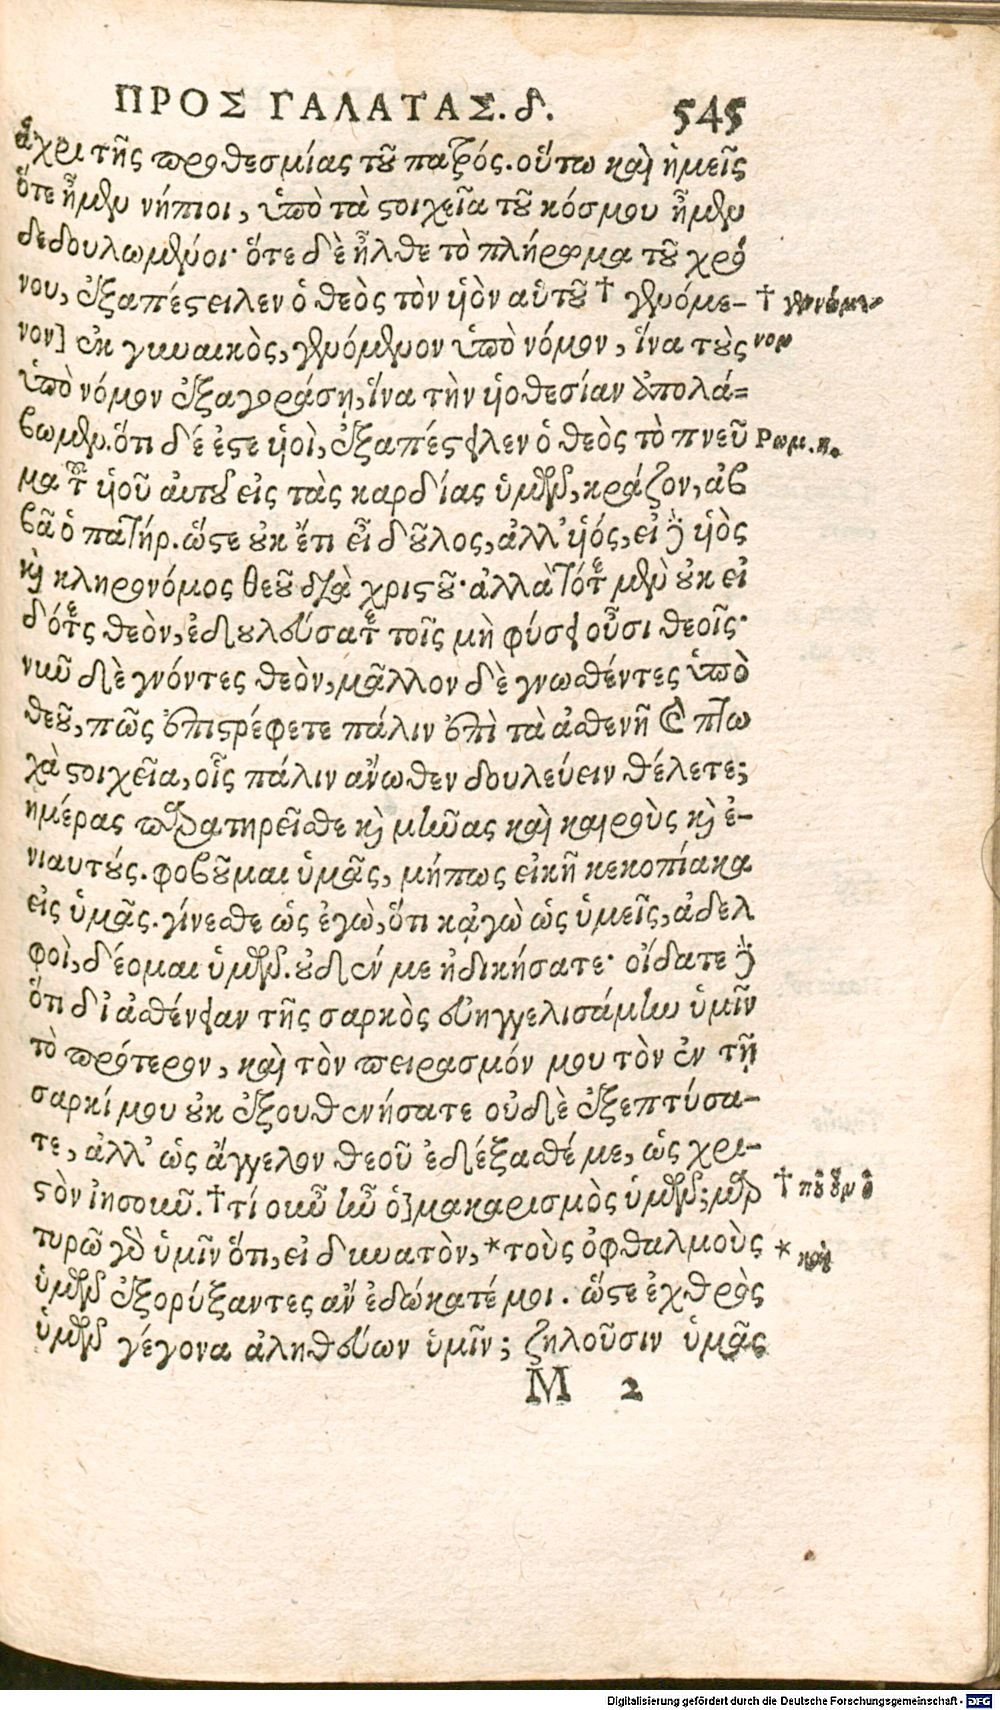 ΠΡΟΣ ΓΑΛΑΤΑΣ. δ. 545
ἄχρι τῆς προθεσμίας τοῦ πατρός. οὕτω καὶ ἡμεῖς
ὅτε ἦμεν νήπιοι, ὑπὸ τὰ στοιχεῖα τοῦ κόσμου ἦμεν
δεδουλωμένοι· ὅτε δὲ ἦλθε τὸ πλήρωμα τοῦ χρό
νου, ἐξαπέστειλεν ὁ θεὸς τὸν υἱὸν αὑτοῦ † γενόμε-
νον] ἐκ γυναικὸς, γενόμενον ὑπὸ νόμον, ἵνα τοὺς
ὑπὸ νόμον ἐξαγοράσῃ, ἵνα τὴν υἱοθεσίαν ἀπολά=
βωμεν. ὅτι δέ ἐστε υἱοὶ, ἐξαπέστειλεν ὁ θεὸς τὸ πνεῦ
μα τοῦ υἱοῦ αὐτοῦ εἰς τὰς καρδίας ὑμῶν, κράζον, ἀβ
βᾶ ὁ πατήρ. ὥστε οὐκ ἔτι εἶ δοῦλος, ἀλλ' υἱός, εἰ δὲ υἱὸς
καὶ κληρονόμος θεοῦ διὰ χριστοῦ· ἀλλὰ τότε μὲν οὐκ εἰ
δότες θεὸν, ἐδουλεύσατε τοῖς μὴ φύσει οὖσι θεοῖς·
νῦν δὲ γνόντες θεὸν, μᾶλλον δὲ γνωσθέντες ὑπὸ
θεοῦ, πῶς ἐπιστρέφετε πάλιν ἐπὶ τὰ ἀσθενῆ καὶ πτω
χὰ στοιχεῖα, οἷς πάλιν ἄνωθεν δουλεύειν θέλετε;
ἡμέρας παρατηρεῖσθε καὶ μῆνας καὶ καιροὺς καὶ ἐ-
νιαυτούς. φοβοῦμαι ὑμᾶς, μήπως εἰκῆ κεκοπίακα
εἰς ὑμᾶς. γίνεσθε ὡς ἐγὼ, ὅτι κᾀγὼ ὡς ὑμεῖς, ἀδελ
φοὶ, δέομαι ὑμῶν. οὐδέν με ἠδικήσατε· οἴδατε δὲ
ὅτι δι' ἀσθένειαν τῆς σαρκὸς εὐηγγελισάμην ὑμῖν
τὸ πρότερον, καὶ τὸν πειρασμόν μου τὸν ἐν τῇ
σαρκί μου οὐκ ἐξουθενήσατε οὐδὲ ἐξεπτύσα-
τε, ἀλλ' ὡς ἄγγελον θεοῦ ἐδέξασθέ με, ὡς χρι-
στὸν ἰησοῦν. † τί οὖν ἦν ὁ] μακαρισμὸς ὑμῶν; μαρ
τυρῶ γὰρ ὑμῖν ὅτι, εἰ δυνατὸν, * τοὺς ὀφθαλμοὺς
ὑμῶν ἐξορύξαντες ἂν ἐδώκατέ μοι. ὥστε ἐχθρὸς
ὑμῶν γέγονα ἀληθεύων ὑμῖν; ζηλοῦσιν ὑμᾶς
M 2
† γεννώμε-
νον
Ρωμ. η.
† ποῦ οὖν ὁ
* καὶ
Digitalisierung gefördert durch die Deutsche Forschungsgemeinschaft - DFG